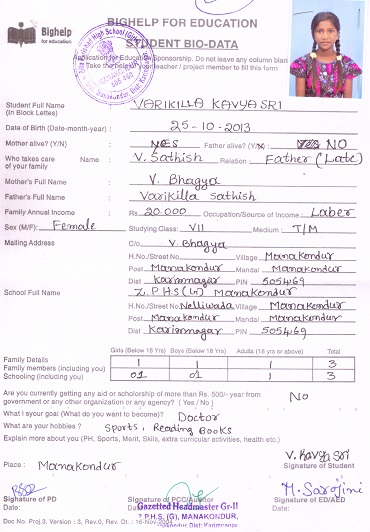 BIGHELP FOR EDUCATION
Bighelp
for education
STUDENT BIO-DATA
Application for Education Sponsorship. Do not leave any column blank
Take the help of your teacher / project member to fill this form
Student Full Name VARIKILLA KAVYA SRI
(In Block Letters)
Date of Birth (Date-month-year) : 25-10-2013
Mother alive? (Y/N) : YES Father alive? (Y/N) : NO
Who takes care Name : V. Sathish Relation : Father (Late)
of your family
Mother's Full Name : V. Bhagya
Father's Full Name : Varikilla Sathish
Family Annual Income : Rs 20.000 Occupation/Source of Income : Laber
Sex (M/F): Female Studying Class: VII Medium : T/M
Mailing Address C/o V. Bhagya
H.No./Street No. Village Manakondur
Post Manakondur Mandal Manakondur
Dist Karimnagar PIN 505469
School Full Name Z.P.H.S (G) Manakondur
H.No./Street No. Nelliwada Village Manakondur
Post Manakondur Mandal Manakondur
Dist Karimnagar PIN 505469
Girls (Below 18 Yrs) Boys (Below 18 Yrs) Adults (18 yrs or above) Total
Family Details
Family members (including you) 1 1 1 3
Schooling (including you) 01 01 1 3
Are you currently getting any aid or scholarship of more than Rs. 500/- year from No
government or any other organization or any agency? ( Yes / No )
What I syour goal (What do you want to become)? Doctor
What are your hobbies ? Sports, Reading Books
Explain more about you (PH, Sports, Merit, Skills, extra curricular activities, health etc.)
V. Kavya Sri
Place : Manakondur Signature of Student
M. Sarojini
Signature of PD Signature of PCC/Auditor Signature of ED/AED
Date: Date: Date:
Gazetted Headmaster Gr-II
Z.P.H.S. (G), MANAKONDUR,
Doc No. Proj.3, Version : 3, Rev.0, Rev. Dt. : 16-Nov